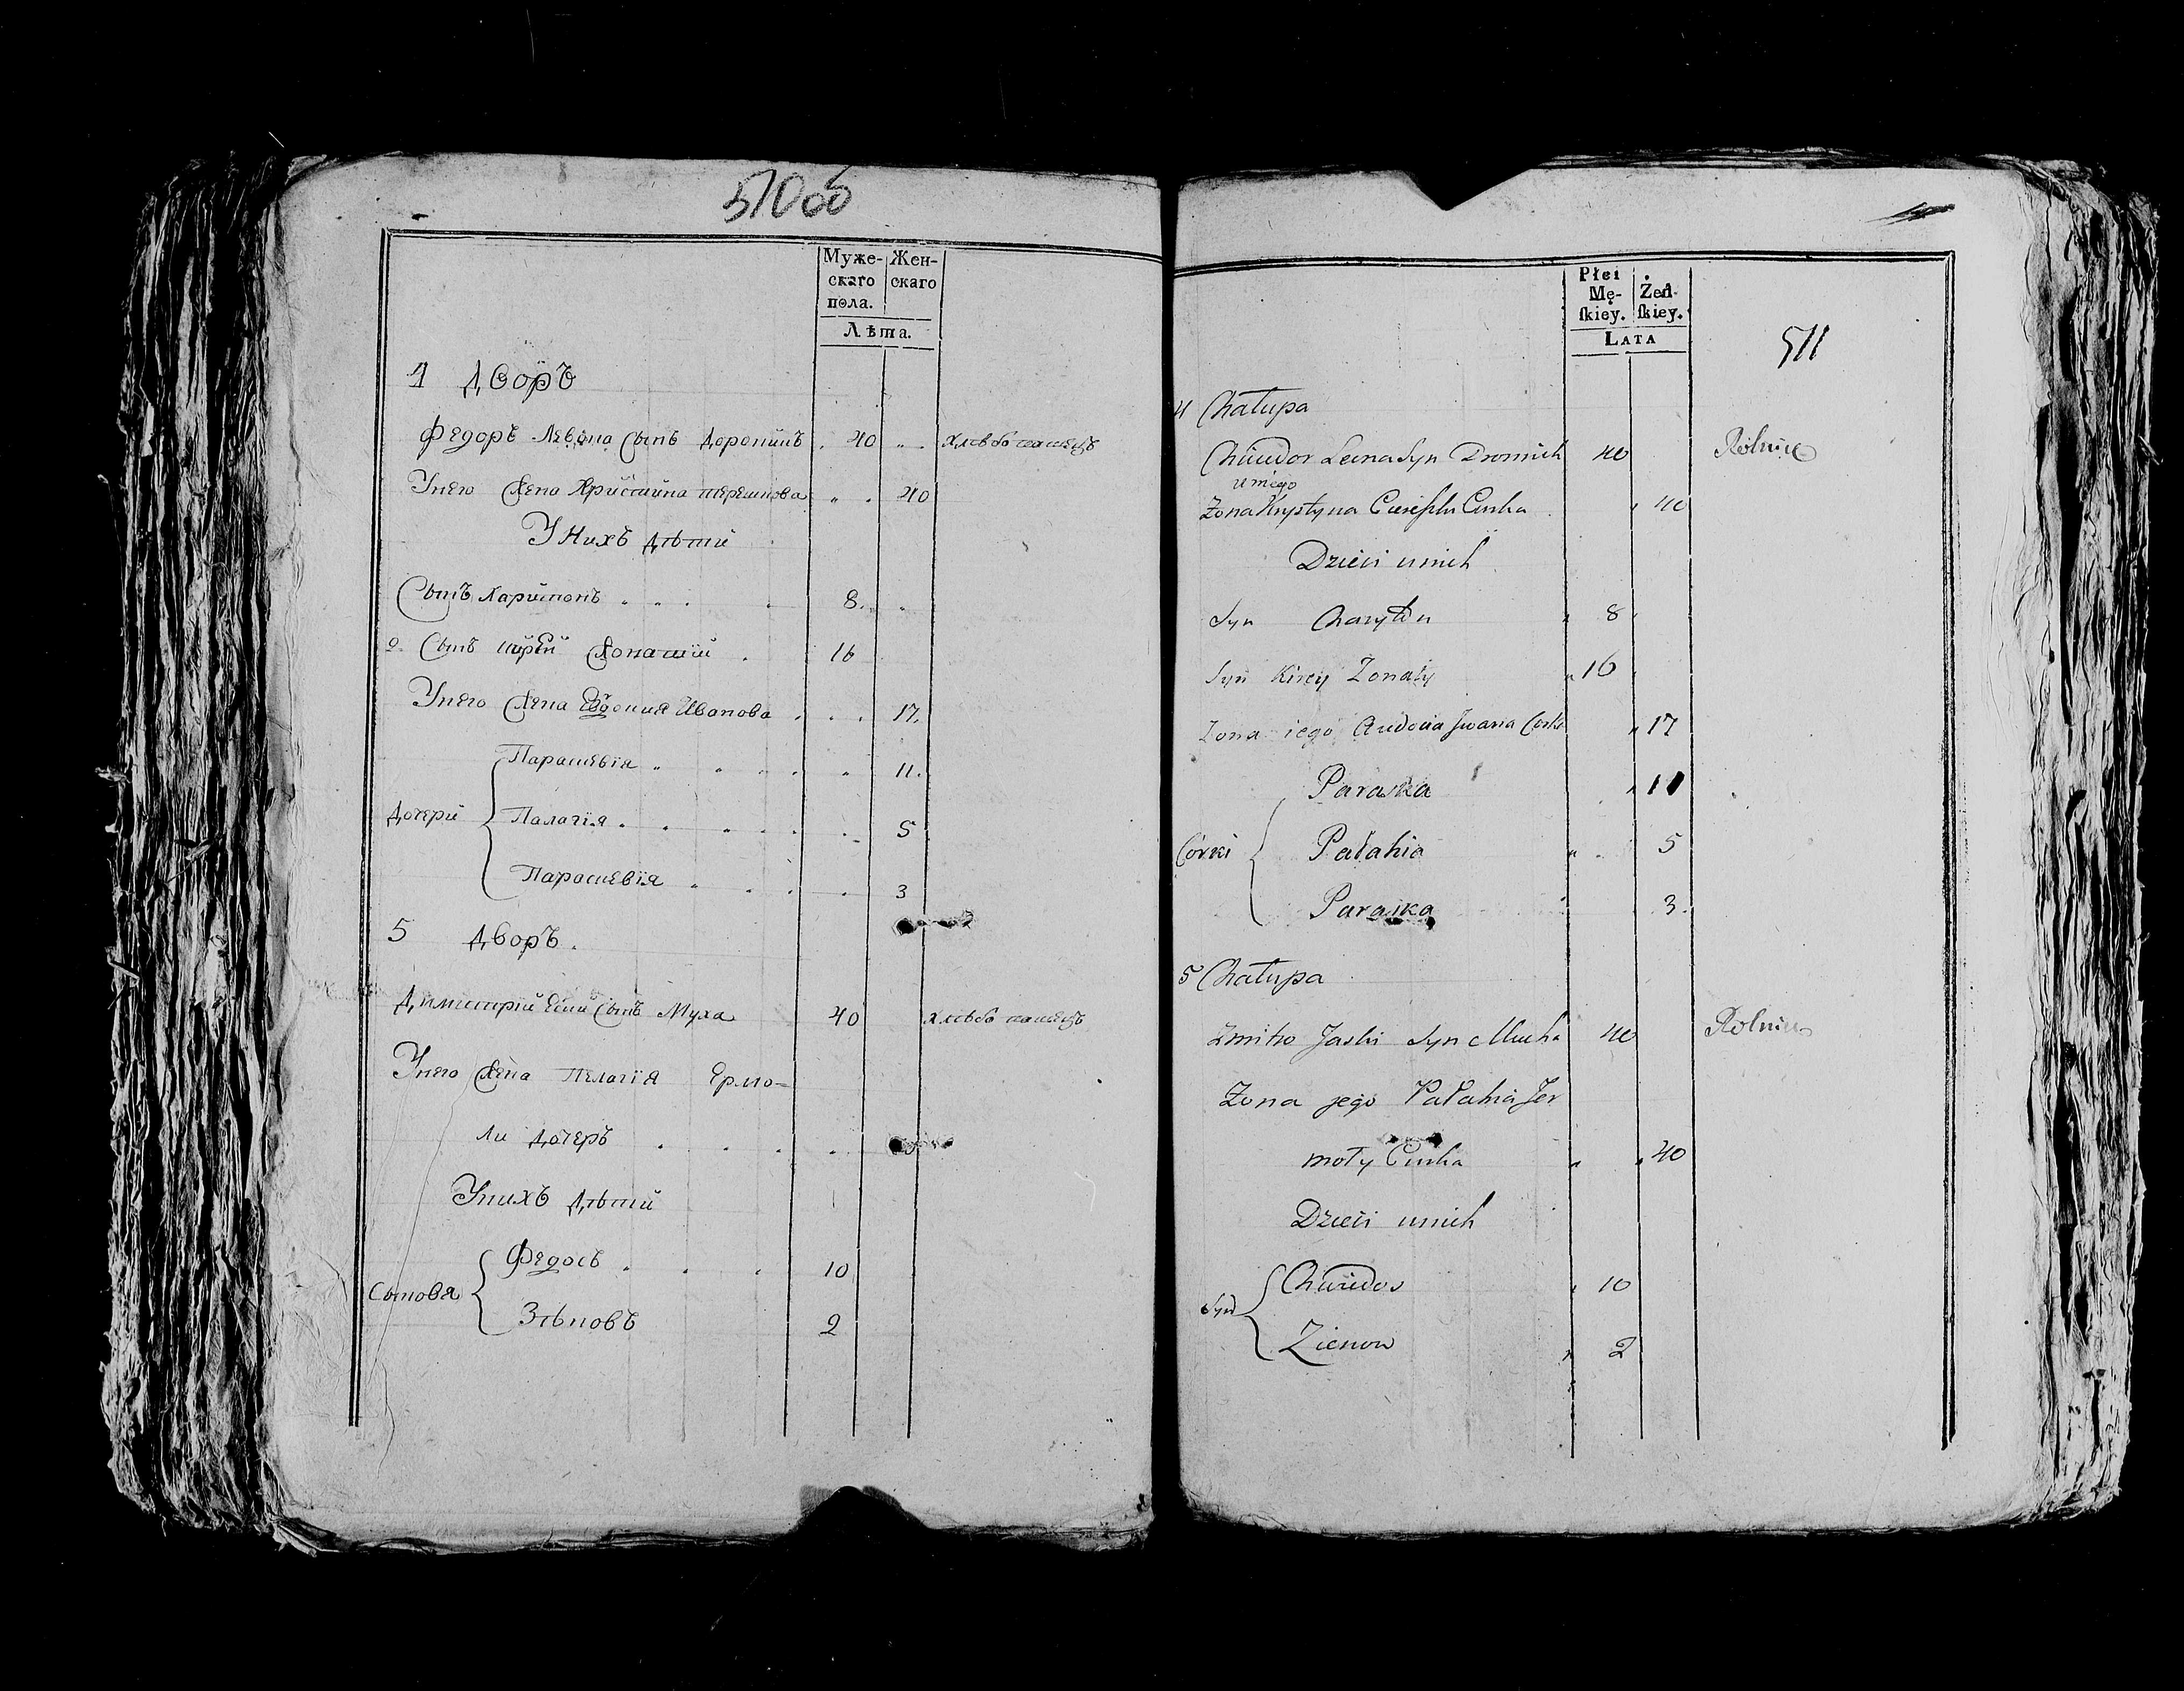 510об
Муже-
скаго
пола.
Жен-
скаго
Лѣта.
4 Дворъ
Федоръ Левона Сынъ Доронинъ 40 хлѣбопашецъ
У него жена Христина терешкова 40
У Нихъ дѣти
Сынъ Харитонъ 8
Сынъ кирей женатый 16
У него жена Евдокия Иванова 17
Парасковія 11
Дочери
Палагія 5
Парасковія 3
5 Дворъ.
Димитрій Сынъ Муха 40 хлѣбопашецъ
У него жена Пелагія Ермо-
ли дочеръ
У нихъ дѣти
Федосъ 10
Сыновя
Зѣновъ 2
Płci
Mę-
ſkiey.
Żeń-
ſkiey.
LATA
511
4 Chałupa
Chwiedor Syn 40 Rolnik
u niego
Zona Krystyna Curka 40
Dzieci u nich
Syn Charyton 8
Syn Kirey Zonaty 16
Zona iego Audocia Jwana Corka 17
Paraska 11
Córki
Pałahia 5
Paraska 3
5 Chałupa
Zmitro Jaski Syn Mucha 40 Rolnik
Zona jego Pałahia Jer
moły Curka 40
Dzieci u nich
Chwiedos 10
Syn
Zienow 2